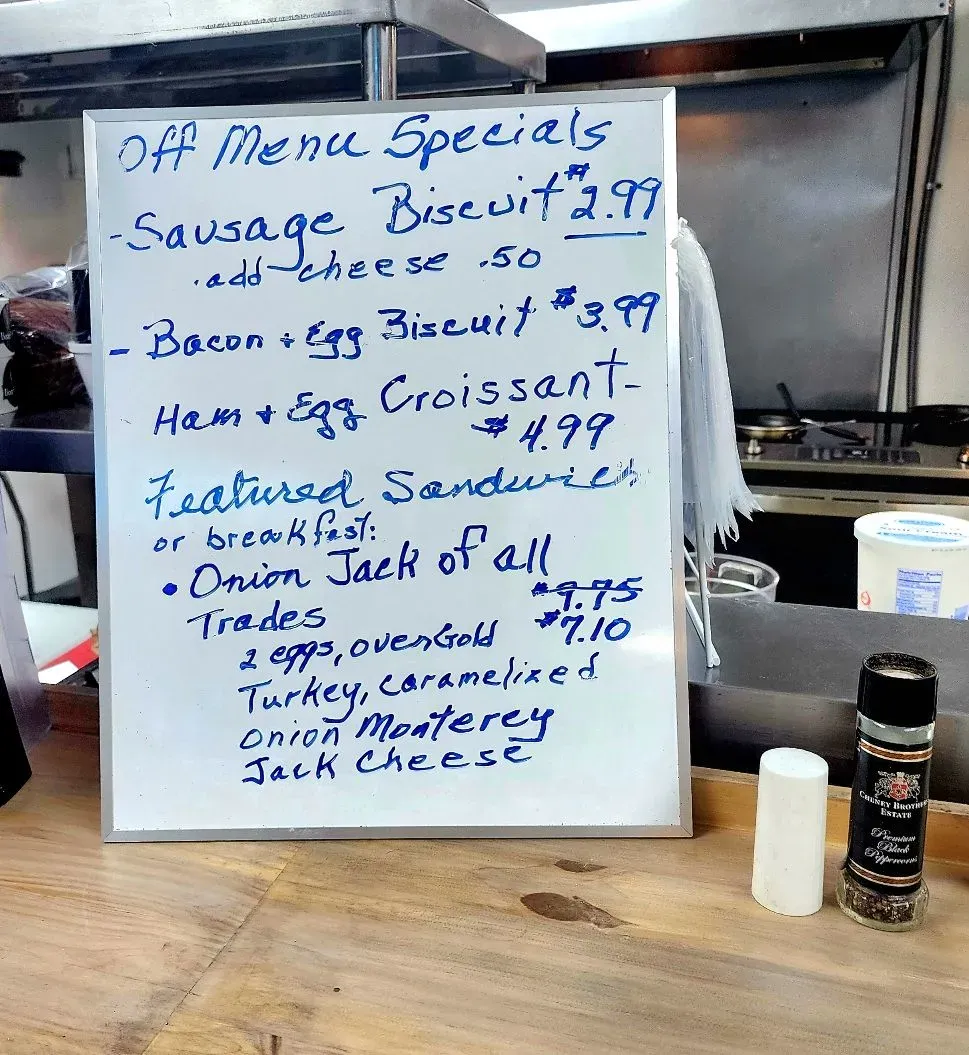 Off Menu Specials
- Sausage Biscuit $2.99
. add cheese .50
- Bacon + Egg Biscuit $3.99
Ham + Egg Croissant -
$4.99
Featured Sandwich
or breakfast:
• Onion Jack of all
Trades $9.75
$7.10
2 eggs, ovenGold
Turkey, caramelized
onion Monterey
Jack Cheese
CHENEY BROTHERS
ESTATE
Premium
Black
Peppercorns